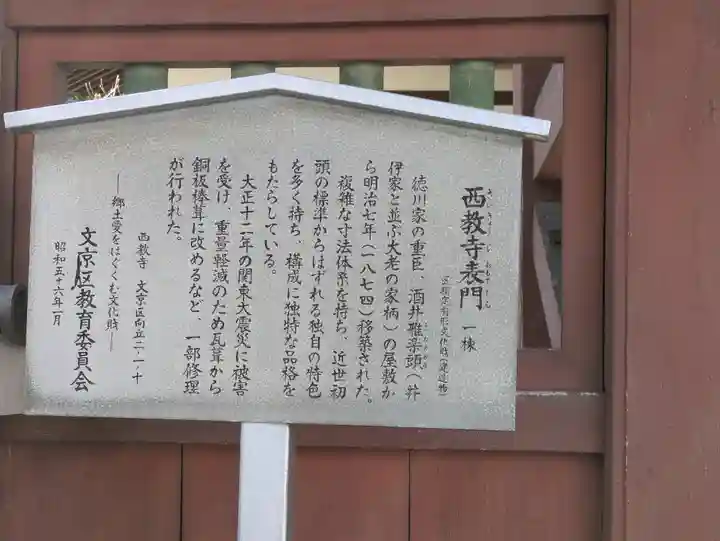 西教寺表門 一棟
さいきょうじおもてもん
区指定有形文化財(建造物)
徳川家の重臣、酒井雅楽頭(井
うたのかみ
伊家と並ぶ大老の家柄)の屋敷か
ら明治七年(一八七四)移築された。
複雑な寸法体系を持ち、近世初
頭の標準からはずれる独自の特色
を多く持ち、構成に独特な品格を
もたらしている。
大正十二年の関東大震災に被害
を受け、重量軽減のため瓦葺から
銅板棒葺に改めるなど、一部修理
が行われた。
西教寺 文京区向丘二・一・十
―郷土愛をはぐくむ文化財―
文京区教育委員会
昭和五十六年一月